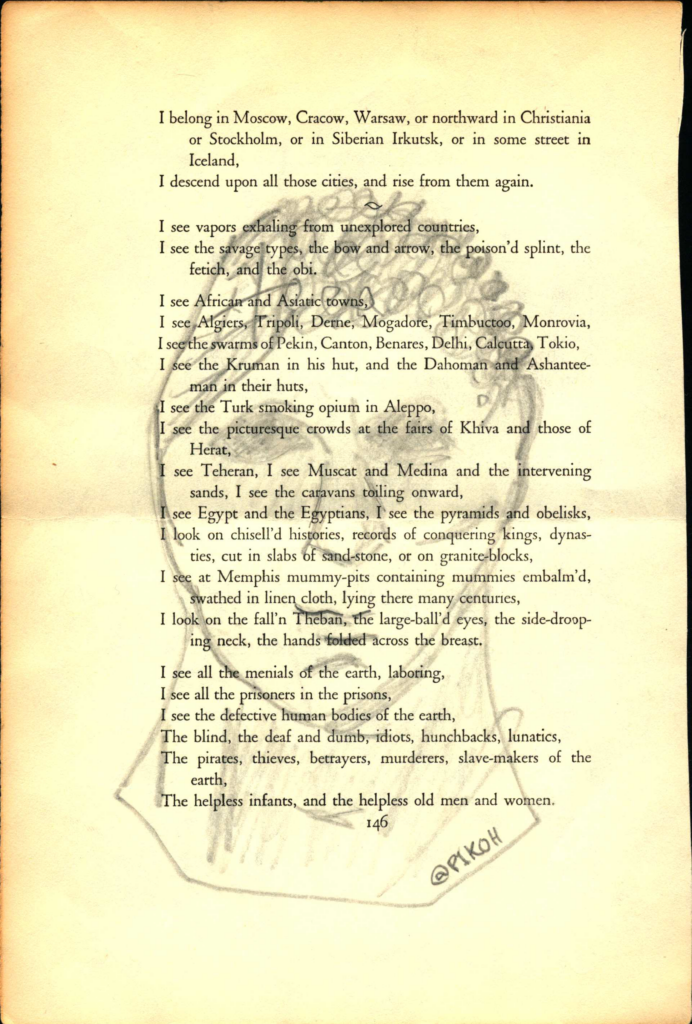 I belong in Moscow, Cracow, Warsaw, or northward in Christiania
or Stockholm, or in Siberian Irkutsk, or in some street in
Iceland,
I descend upon all those cities, and rise from them again.
I see vapors exhaling from unexplored countries,
I see the savage types, the bow and arrow, the poison'd splint, the
fetich, and the obi.
I see African and Asiatic towns,
I see Algiers, Tripoli, Derne, Mogadore, Timbuctoo, Monrovia,
I see the swarms of Pekin, Canton, Benares, Delhi, Calcutta, Tokio,
I see the Kruman in his hut, and the Dahoman and Ashantee-
man in their huts,
I see the Turk smoking opium in Aleppo,
I see the picturesque crowds at the fairs of Khiva and those of
Herat,
I see Teheran, I see Muscat and Medina and the intervening
sands, I see the caravans toiling onward,
I see Egypt and the Egyptians, I see the pyramids and obelisks,
I look on chisell'd histories, records of conquering kings, dynas-
ties, cut in slabs of sand-stone, or on granite-blocks,
I see at Memphis mummy-pits containing mummies embalm'd,
swathed in linen cloth, lying there many centuries,
I look on the fall'n Theban, the large-ball'd eyes, the side-droop-
ing neck, the hands folded across the breast.
I see all the menials of the earth, laboring,
I see all the prisoners in the prisons,
I see the defective human bodies of the earth,
The blind, the deaf and dumb, idiots, hunchbacks, lunatics,
The pirates, thieves, betrayers, murderers, slave-makers of the
earth,
The helpless infants, and the helpless old men and women.
146
@PIKOH